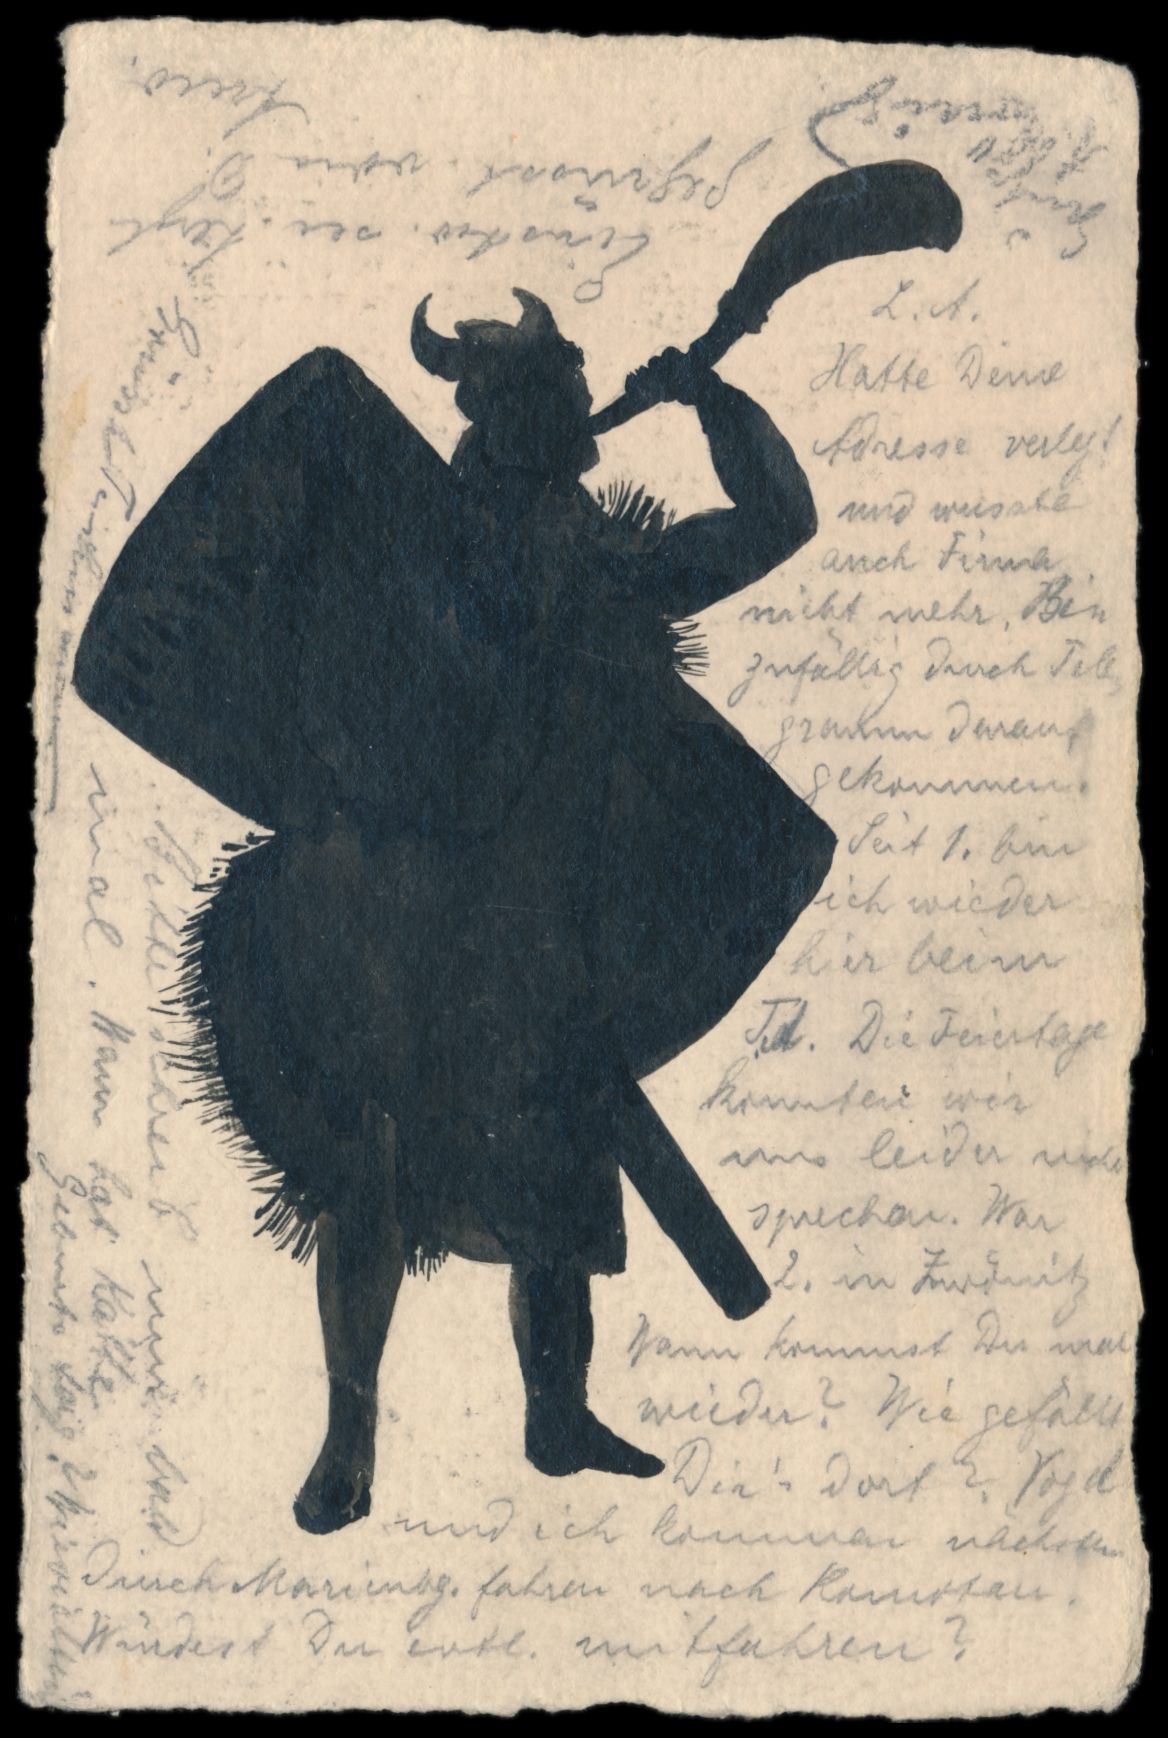 L. A.
Hatte Deine
Adresse verlegt
und wusste
auch Firma
nicht mehr. Bin
zufällig durch Tele
gramm darauf
gekommen.
Seit 1. bin
ich wieder
hier beim
Tel. Die Feiertage
konnten wir
uns leider nicht
sprechen. War
2. in Zwönitz
Wann kommst Du mal
wieder? Wie gefällt
Dir's dort?
und ich kommen nächstens
durch Marienbg. fahren nach Komotau.
Würdest Du evtl. mitfahren?
Bitte schreib mir bald
mal. Wann hat Käthe
Geburtstag?
Einstw. sei
gegrüsst von